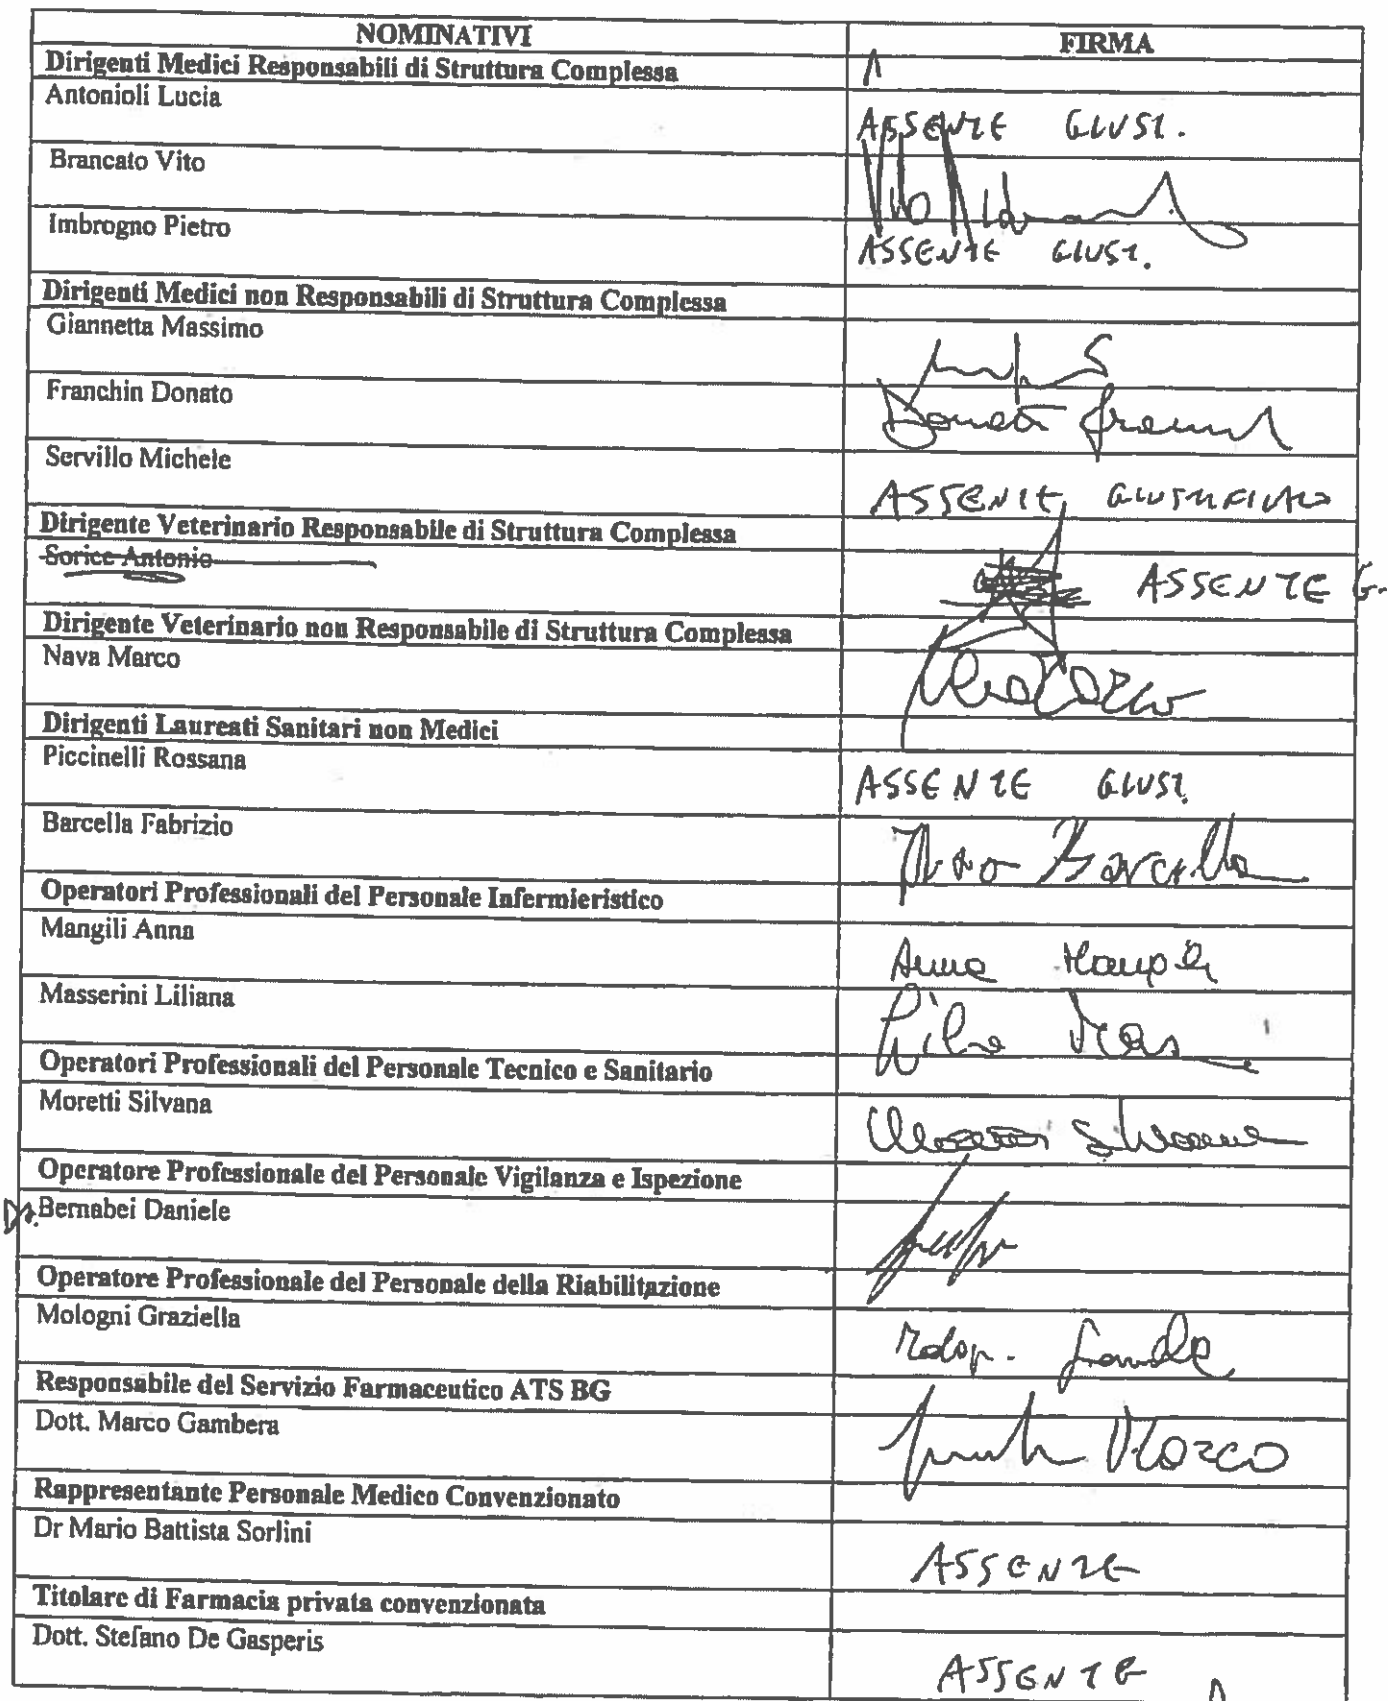 NOMINATIVI FIRMA
Dirigenti Medici Responsabili di Struttura Complessa
Antonioli Lucia ASSENTE GIUST.
Brancato Vito
Imbrogno Pietro ASSENTE GIUST.
Dirigenti Medici non Responsabili di Struttura Complessa
Giannetta Massimo
Franchin Donato
Servillo Michele ASSENTE GIUSTIFICATO
Dirigente Veterinario Responsabile di Struttura Complessa
Sorice Antonio ASSENTE G.
Dirigente Veterinario non Responsabile di Struttura Complessa
Nava Marco
Dirigenti Laureati Sanitari non Medici
Piccinelli Rossana ASSENTE GIUST.
Barcella Fabrizio Barcella
Operatori Professionali del Personale Infermieristico
Mangili Anna Anna Mangili
Masserini Liliana
Operatori Professionali del Personale Tecnico e Sanitario
Moretti Silvana Moretti Silvana
Operatore Professionale del Personale Vigilanza e Ispezione
Bernabei Daniele
Operatore Professionale del Personale della Riabilitazione
Mologni Graziella
Responsabile del Servizio Farmaceutico ATS BG
Dott. Marco Gambera Marco
Rappresentante Personale Medico Convenzionato
Dr Mario Battista Sorlini ASSENTE
Titolare di Farmacia privata convenzionata
Dott. Stefano De Gasperis ASSENTE